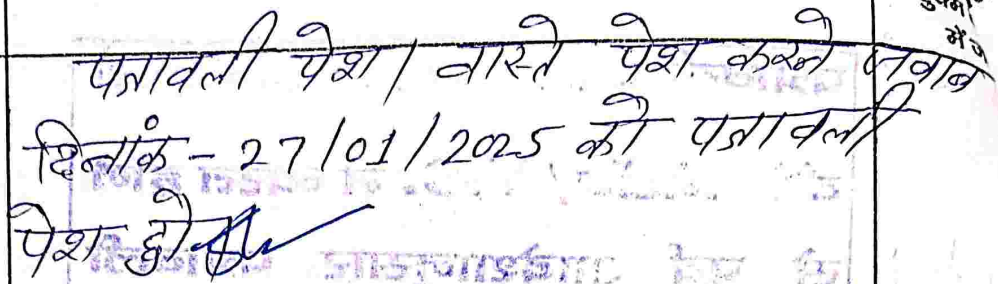 पत्रावली पेश। वास्ते पेश करने जवाब
दिनांक - 27/01/2025 को पत्रावली
पेश हो